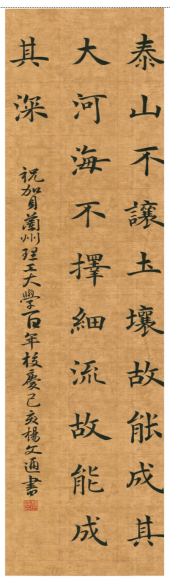 泰山不讓土壤故能成其
大河海不擇細流故能成
其深
祝賀蘭州理工大學百年校慶己亥楊文通書